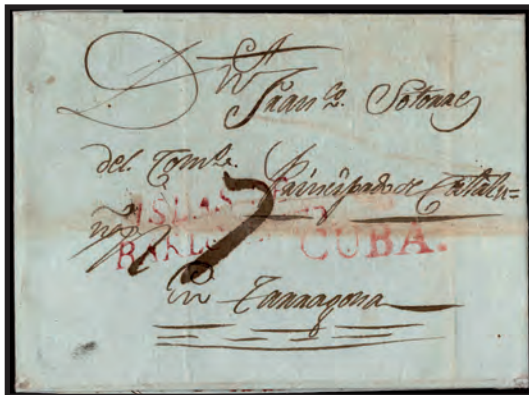 Dn
Franco. Sotorra
del Como. Principado de Catalu=
ña
ISLAS
BARLO CUBA.
7
En Tarragona